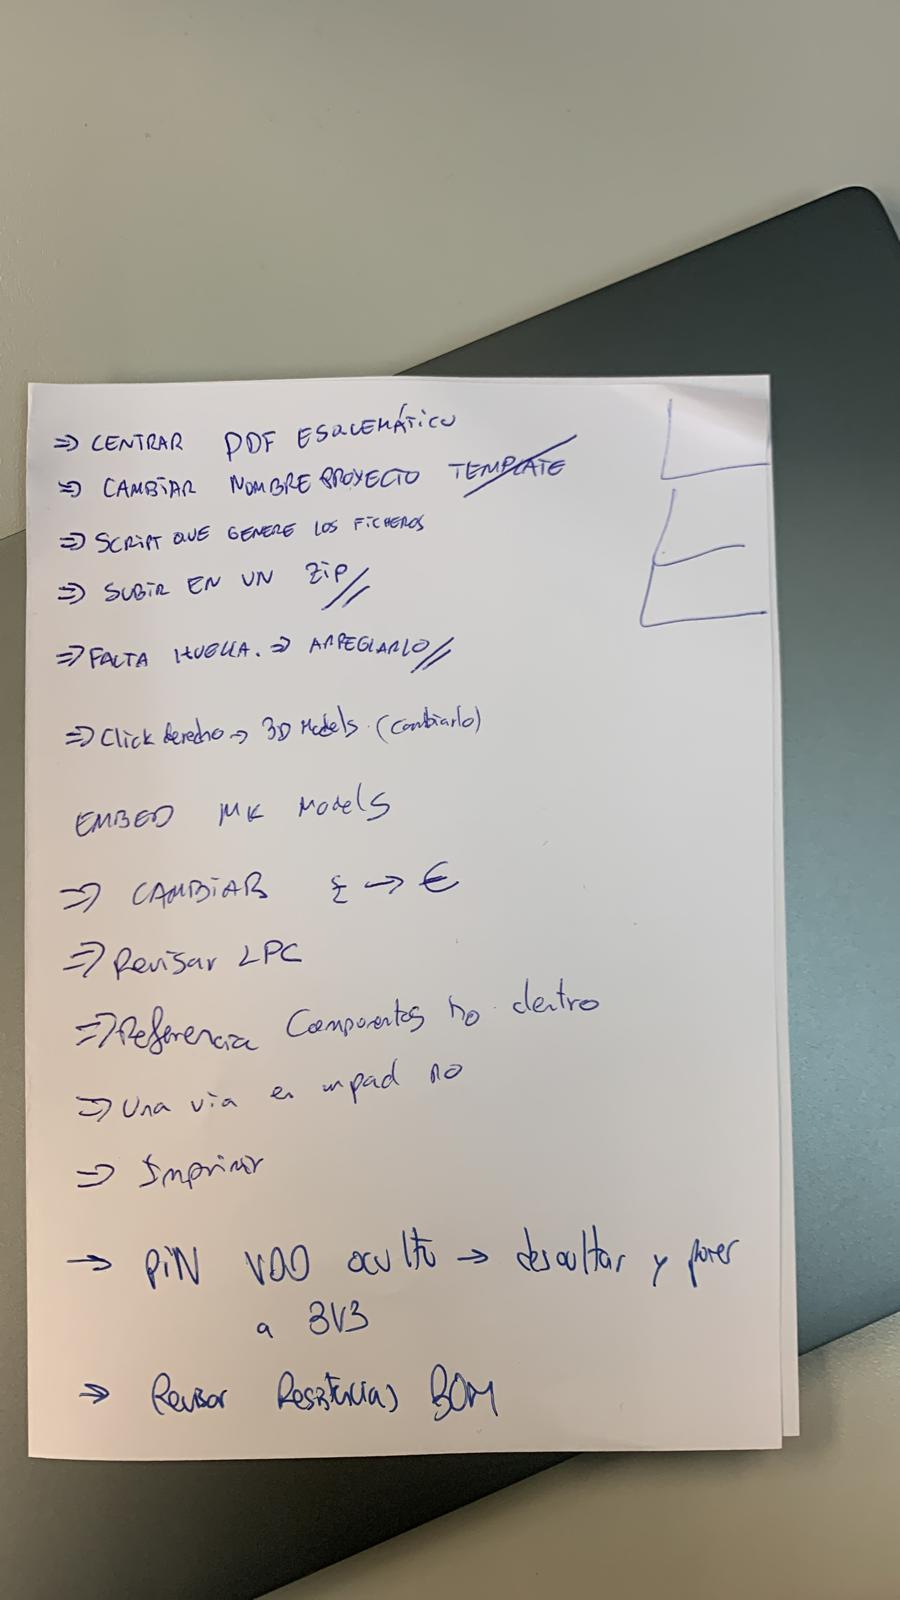 ⇒ CENTRAR PDF ESQUEMÁTICO
⇒ CAMBIAR NOMBRE PROYECTO TEMPLATE
⇒ SCRIPT QUE GENERE LOS FICHEROS
⇒ SUBIR EN UN ZIP //
⇒ FALTA HUELLA. ⇒ ARREGLARLO //
⇒ Click derecho → 3D Models (cambiarlo)
EMBED Models
⇒ CAMBIAR £ → €
⇒ Revisar LPC
⇒ Referencia Componentes no dentro
⇒ Una via en un pad no
⇒ Imprimir
→ PIN VDD oculto → desocultar y poner
a 3V3
⇒ Revisar Resistencias BOM